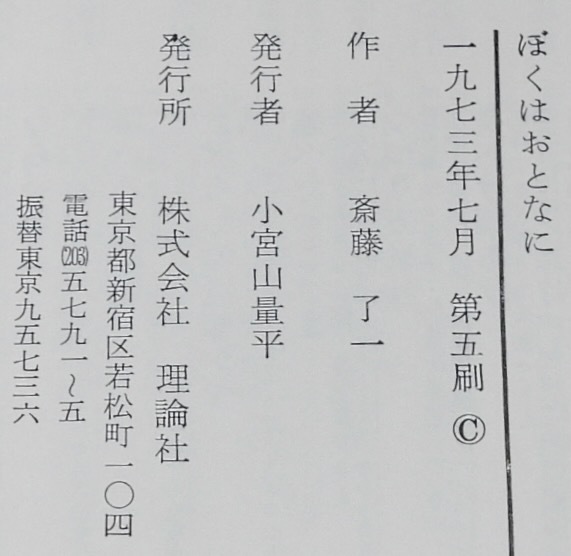 ぼくはおとなに
一九七三年七月 第五刷 ©
作者 斎藤 了一
発行者 小宮山量平
発行所 株式会社 理論社
東京都新宿区若松町一〇四
電話(203)五七九一～五
振替東京九五七三六